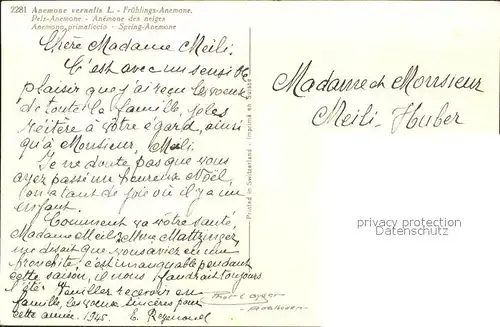 2281 Anemone vernalis L. - Frühlings-Anemone.
Pelz-Anemone - Anémone des neiges
Anemono primaticcio - Spring-Anemone
Chère Madame Meili.
C'est avec un sensible
plaisir que j'ai reçu les voeux
de toute la famille, je les
réitère à vôtre égard, ainsi
qu'à Monsieur Meili.
Je ne doute pas que vous
ayez passé un heureux Noël,
on a tant de joie où il y a un
enfant.
Comment va vôtre santé,
Madame Meili? Mme Mattzinger
me disait que vous aviez eu une
bronchite, c'est immanquable pendant
cette saison, il nous faudrait toujours
l'été. Veuillez recevoir en
famille, les voeux sincères pour
cette année. 1945. E. Reymond
Imprimé en Suisse
Printed in Switzerland
Madame et Monsieur
Meili-Huber
privacy protection
Datenschutz